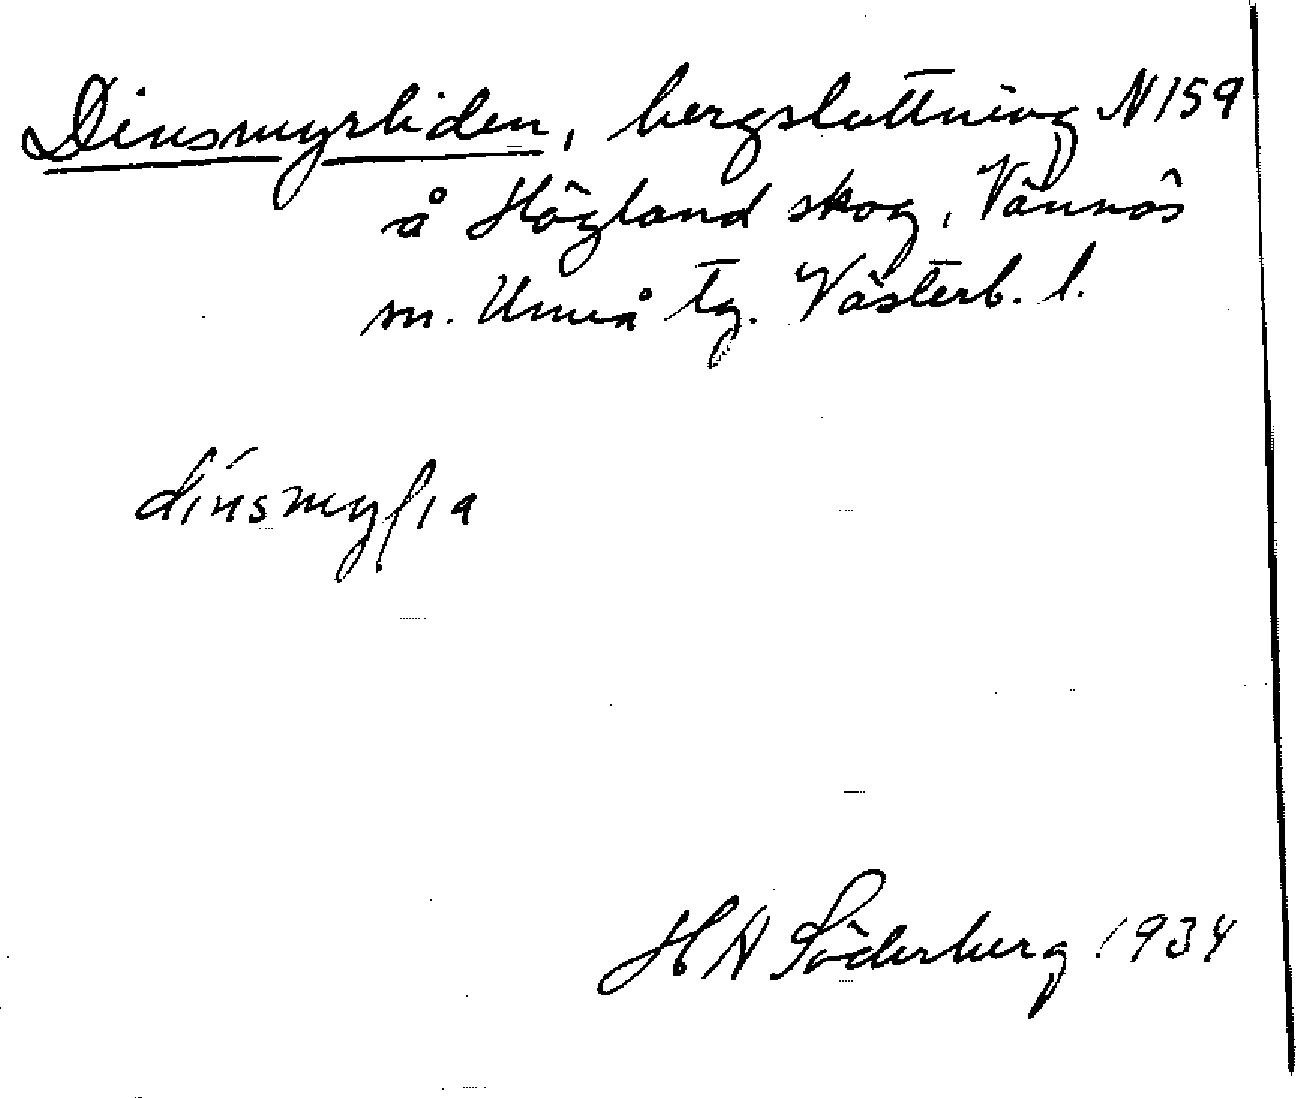 Dinsmyrliden, bergsluttning N 159
å Högland skog, Vännäs
m. Umeå tg. Västerb. l.
H A Söderberg 1934